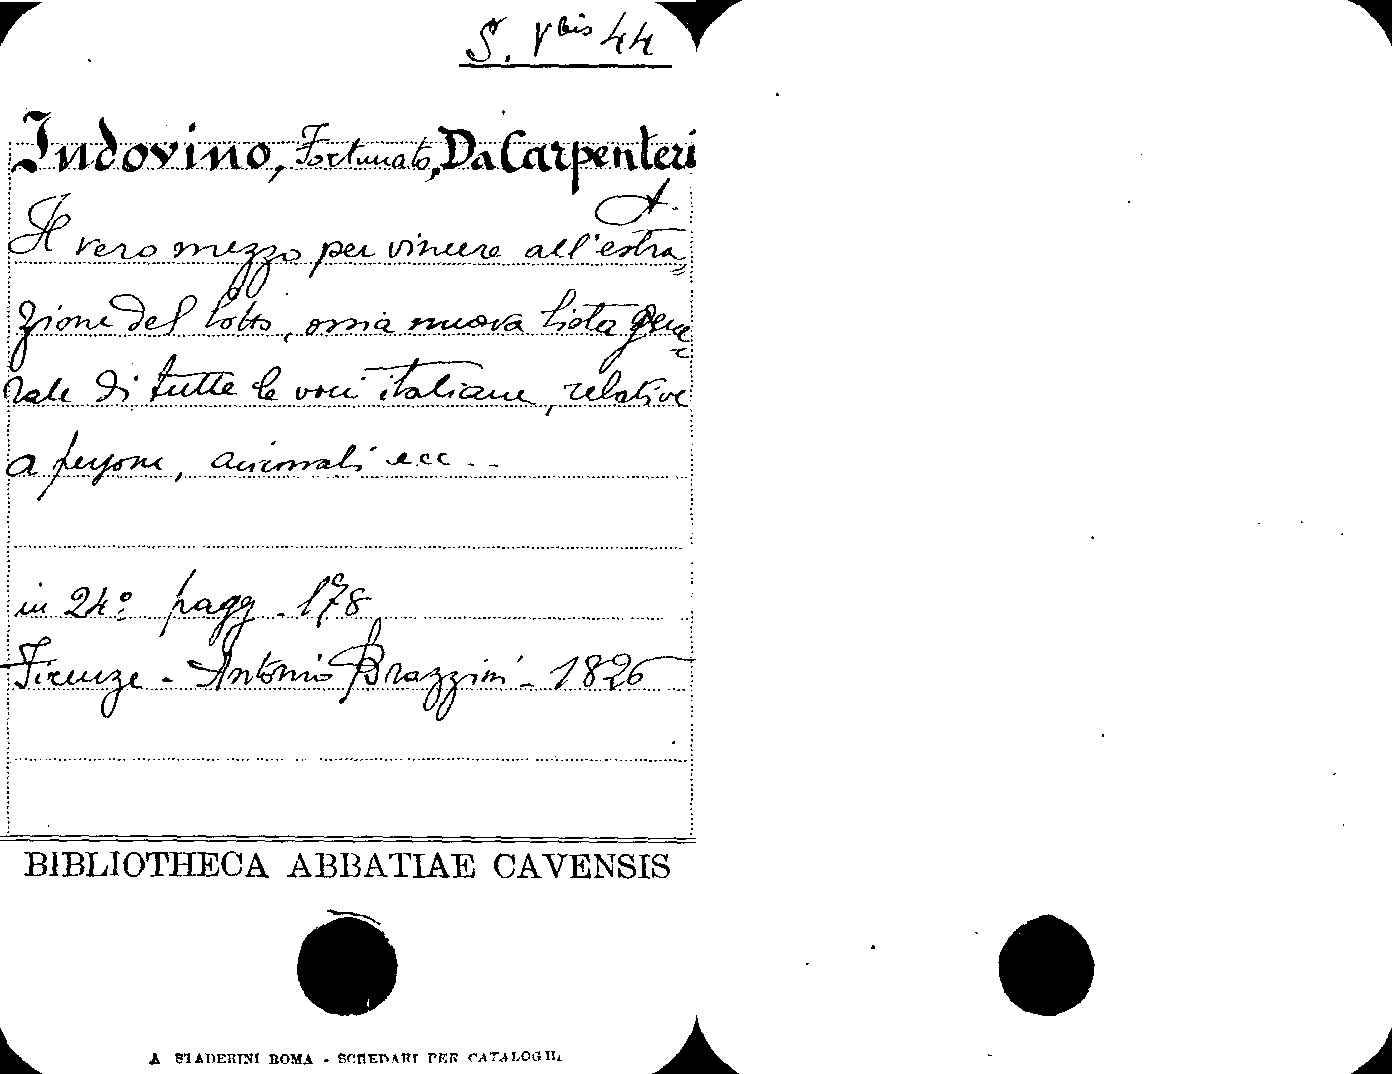 S. Vbis 44
Indovino, Fortunato, Da Carpenteri
A.
Il vero mezzo per vincere all'estra=
zione del lotto, ossia nuova lista gene=
rale di tutte le voci italiane, relative
a persone, animali ecc..
in 24º pagg. 178
Firenze - Antonio Brazzini - 1826
BIBLIOTHECA ABBATIAE CAVENSIS
A STADERINI ROMA - SCHEDARI PER CATALOGHI.